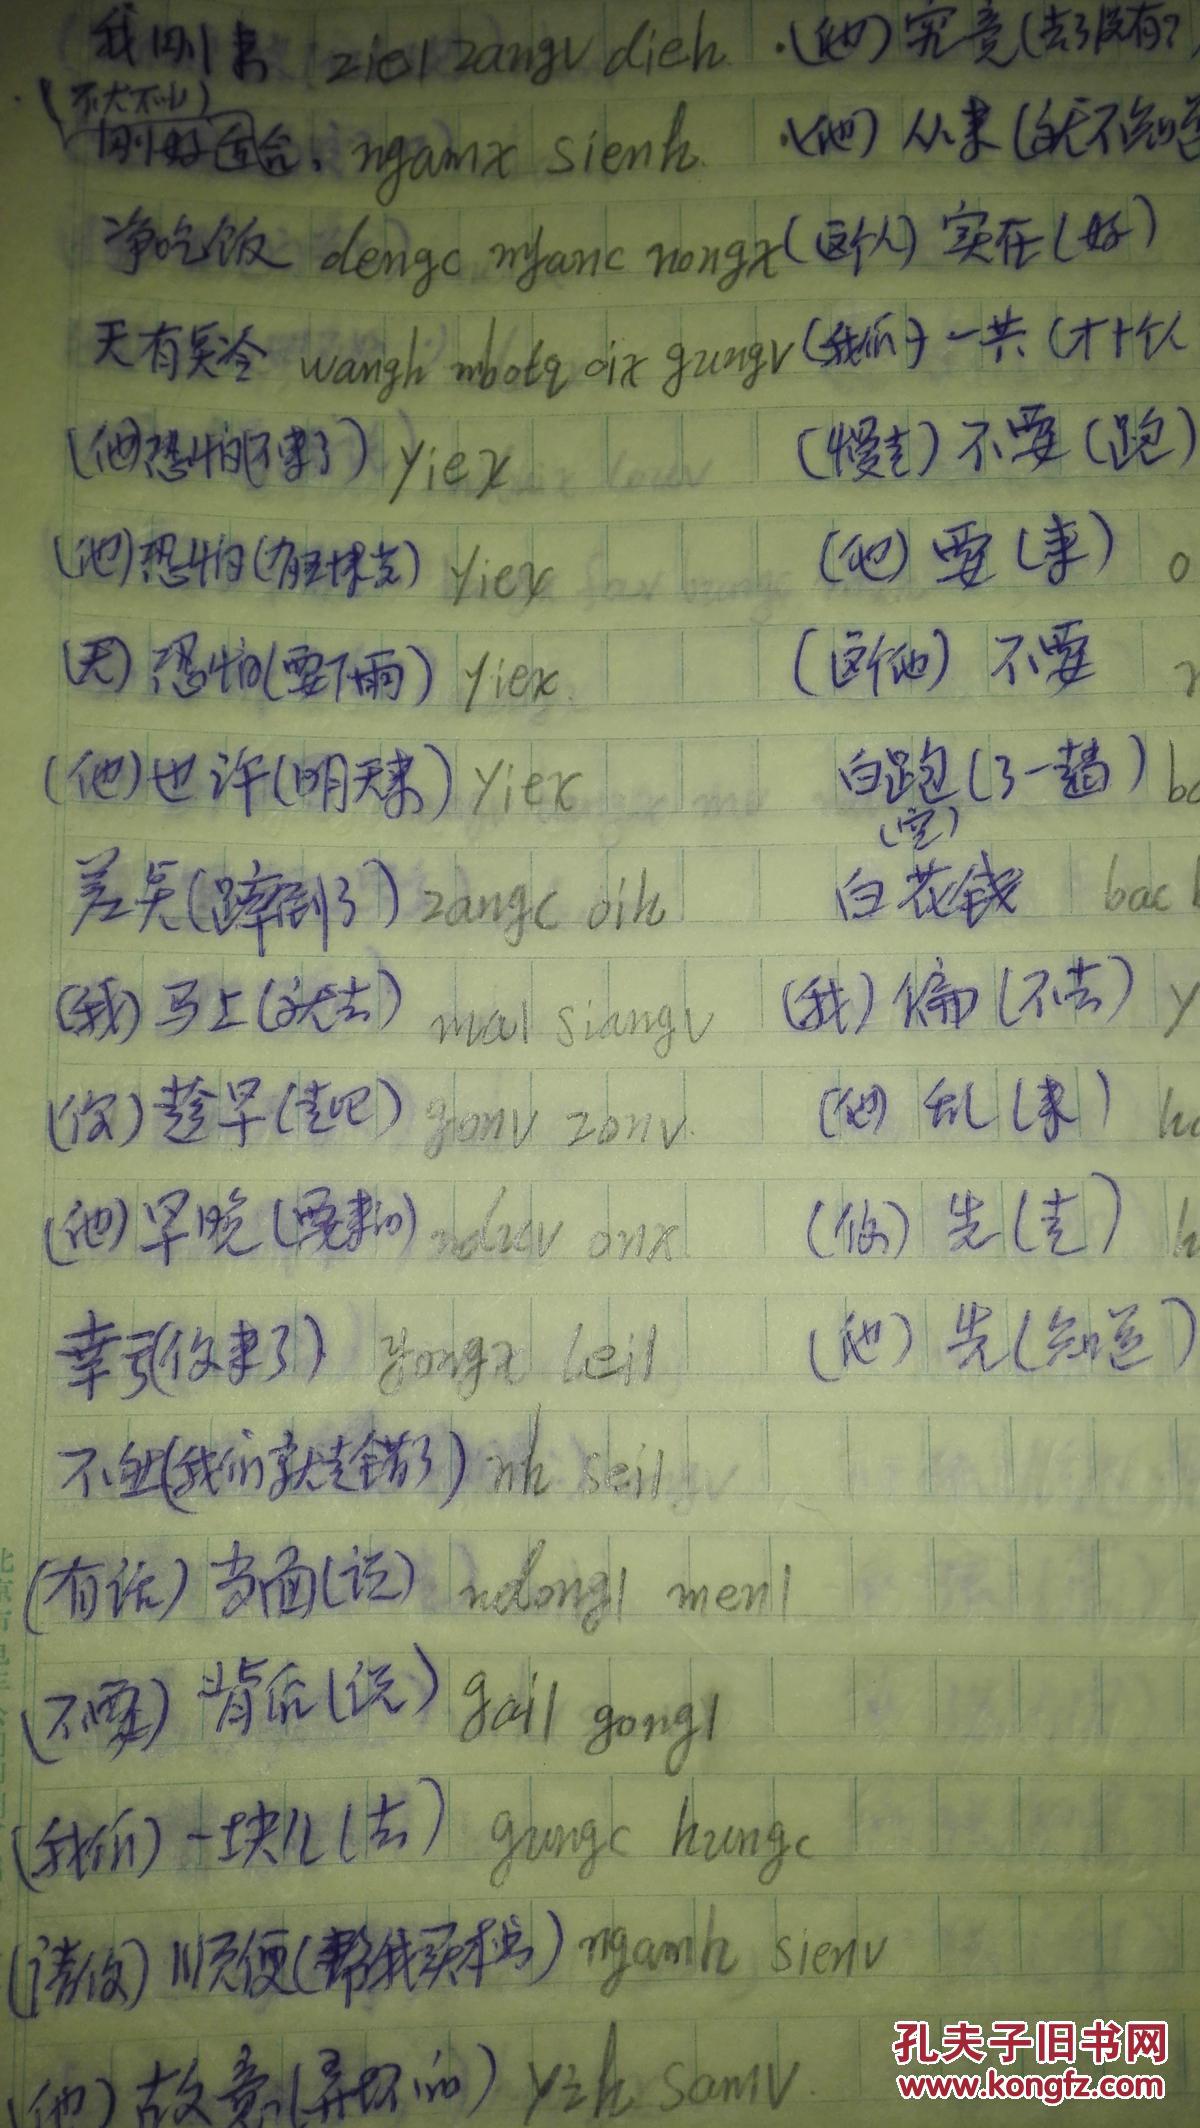 我刚来 ziel zangv dieh .(他)究竟(去了没有?
(不大不小)
刚好适合, ngamx sienh. .(他)从来(就不知道
净吃饭 dengc nyanc nongx (这个人)实在(好)
天有点冷 wangh mbotq oix gungv (我们)一共(才十个人
(他)恐怕(不来了) yiex (慢走)不要(跑)
(他)恐怕 yiex (他)要(来) o
(天)恐怕(要下雨) yiex. (这个他)不要
(他)也许(明天来) yiex 白跑(了一趟)
(空)
差点(跌倒了) zangc oih 白花钱 bac
(我)马上(就去) mal siangv (我)偏(不去) y
(你)趁早(走吧) gonv zonv. (他)乱(来)
(他)早晚(要来的) nduv onx (你)先(走) h
幸亏(你来了) yongx leil (他)先(知道)
不然(我们就走错了) nh seil
(有话)当面(说) ndongl menl
(不要)背后(说) gail gongl
(我们)一块儿(去) gungc hungc
(请你)顺便(帮我买本书) ngamh sienv
(他)故意(弄坏的) yzh samv.
孔夫子旧书网
www.kongfz.com